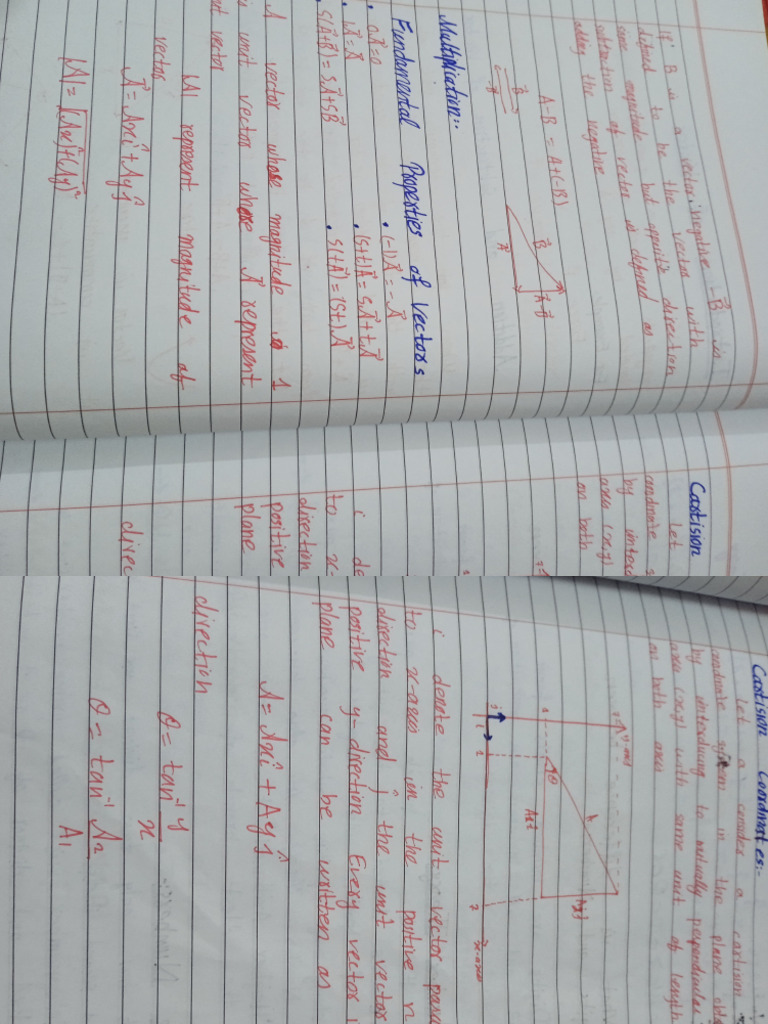 If B is a vector, negative -B⃗ is
defined to be the vector with
same magnitude but opposite direction
subtraction of vector is defined as
adding the negative
A-B = A+(-B)
B⃗
B⃗
A⃗
A-B
Multiplication:-
Fundamental Properties of Vectors
• 0A⃗=0
• (-1)A⃗=-A⃗
• 1A⃗=A⃗
• (s+t)A⃗=sA⃗+tA⃗
• S(A⃗+B⃗)=SA⃗+SB⃗
• S(tA⃗)=(St)A⃗
A vector whose magnitude is 1
unit vector whose A⃗ represent
vector
|A| represent magnitude of
vectors
A⃗ = Axî+Ayĵ
|A| = √(Ax)²+(Ay)²
Castision
Let
by introdu
axis (x,y)
on both
i de
to x-
direction
positive
plane
direc
Castision Coordinates:-
Let a consider a cartision
cordinate system in the plane
by introducing to mutually perpendicular
axis (x,y) with same unit of length
on both axis
y-axis
θ
h
Axî
Ayĵ
j
i
1
1
2
x-axis
i denote the unit vector
to x-axis in the positive
direction and ĵ the unit vector
positive y-direction Every vector i
plane can be written as
A = Axî + Ayĵ
direction
θ = tan⁻¹ y/x
θ = tan⁻¹ A2/A1